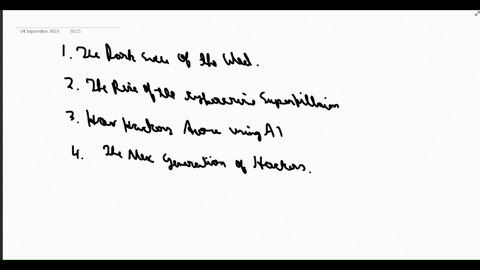 04 September 2023 10:15
1. The Dark Side Of the Web.
2. The Rise of the Supervillains
3. How Hackers are using AI
4. The Next Generation of Hackers.